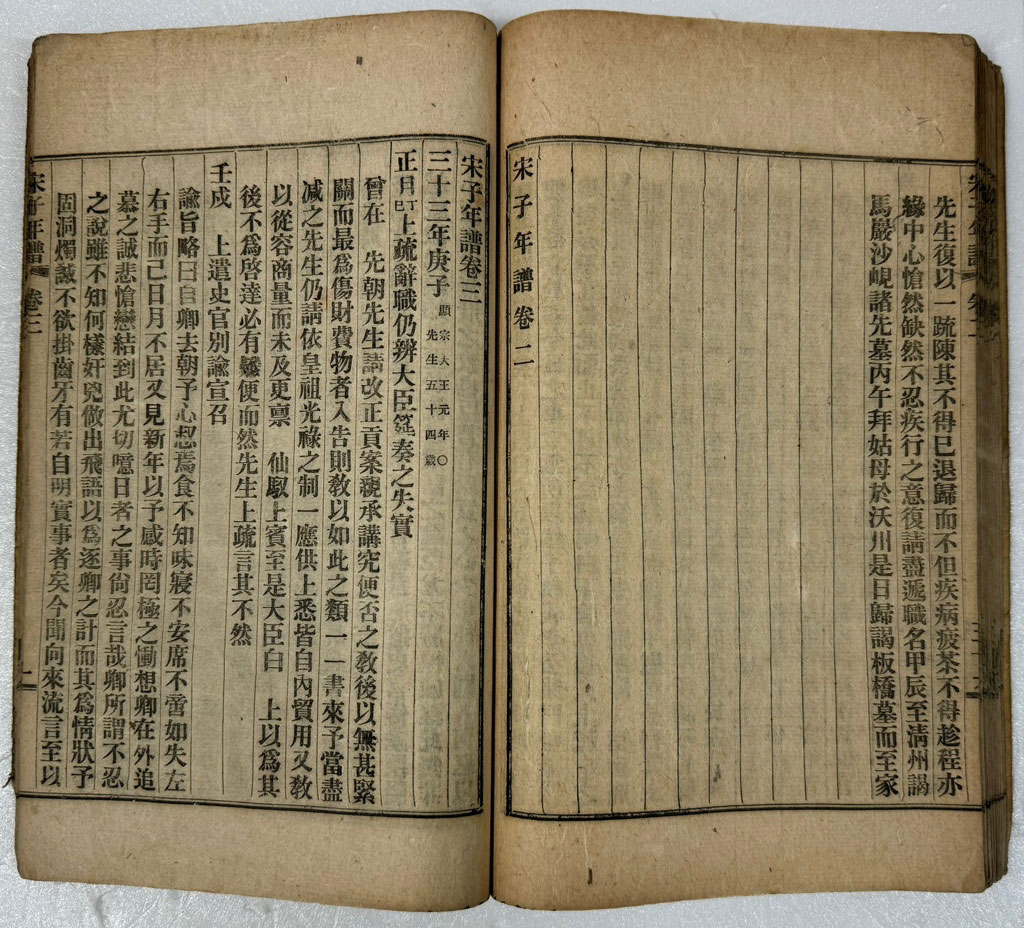 先生復以一疏陳其不得已退歸而不但疾病疲苶不得趁程亦
緣中心愴然缺然不忍疾行之意復請盡遞職名甲辰至淸州謁
馬巖沙峴諸先墓丙午拜姑母於沃川是日歸謁板橋墓而至家
宋子年譜卷二
宋子年譜卷三
三十三年庚子顯宗大王元年〇先生五十四歲
正月丁巳上疏辭職仍辨大臣筵奏之失實
曾在 先朝先生請改正貢案親承講究便否之敎後以無甚緊
關而最爲傷財費物者入告則敎以如此之類一一書來予當盡
减之先生仍請依皇祖光祿之制一應供上悉皆自內貿用又敎
以從容商量而未及更稟 仙馭上賓至是大臣白 上以爲其
後不爲啓達必有難便而然先生上疏言其不然
壬戌 上遣史官別諭宣召
諭旨略曰自卿去朝予心惄焉食不知味寢不安席不啻如失左
右手而已日月不居又見新年以予感時罔極之慟想卿在外追
慕之誠悲愴戀結到此尤切噫日者之事尙忍言哉卿所謂不忍
之說雖不知何樣奸兇做出飛語以爲逐卿之計而其爲情狀予
固洞燭誠不欲掛齒牙有若自明實事者矣今聞向來流言至以
宋子年譜 卷三